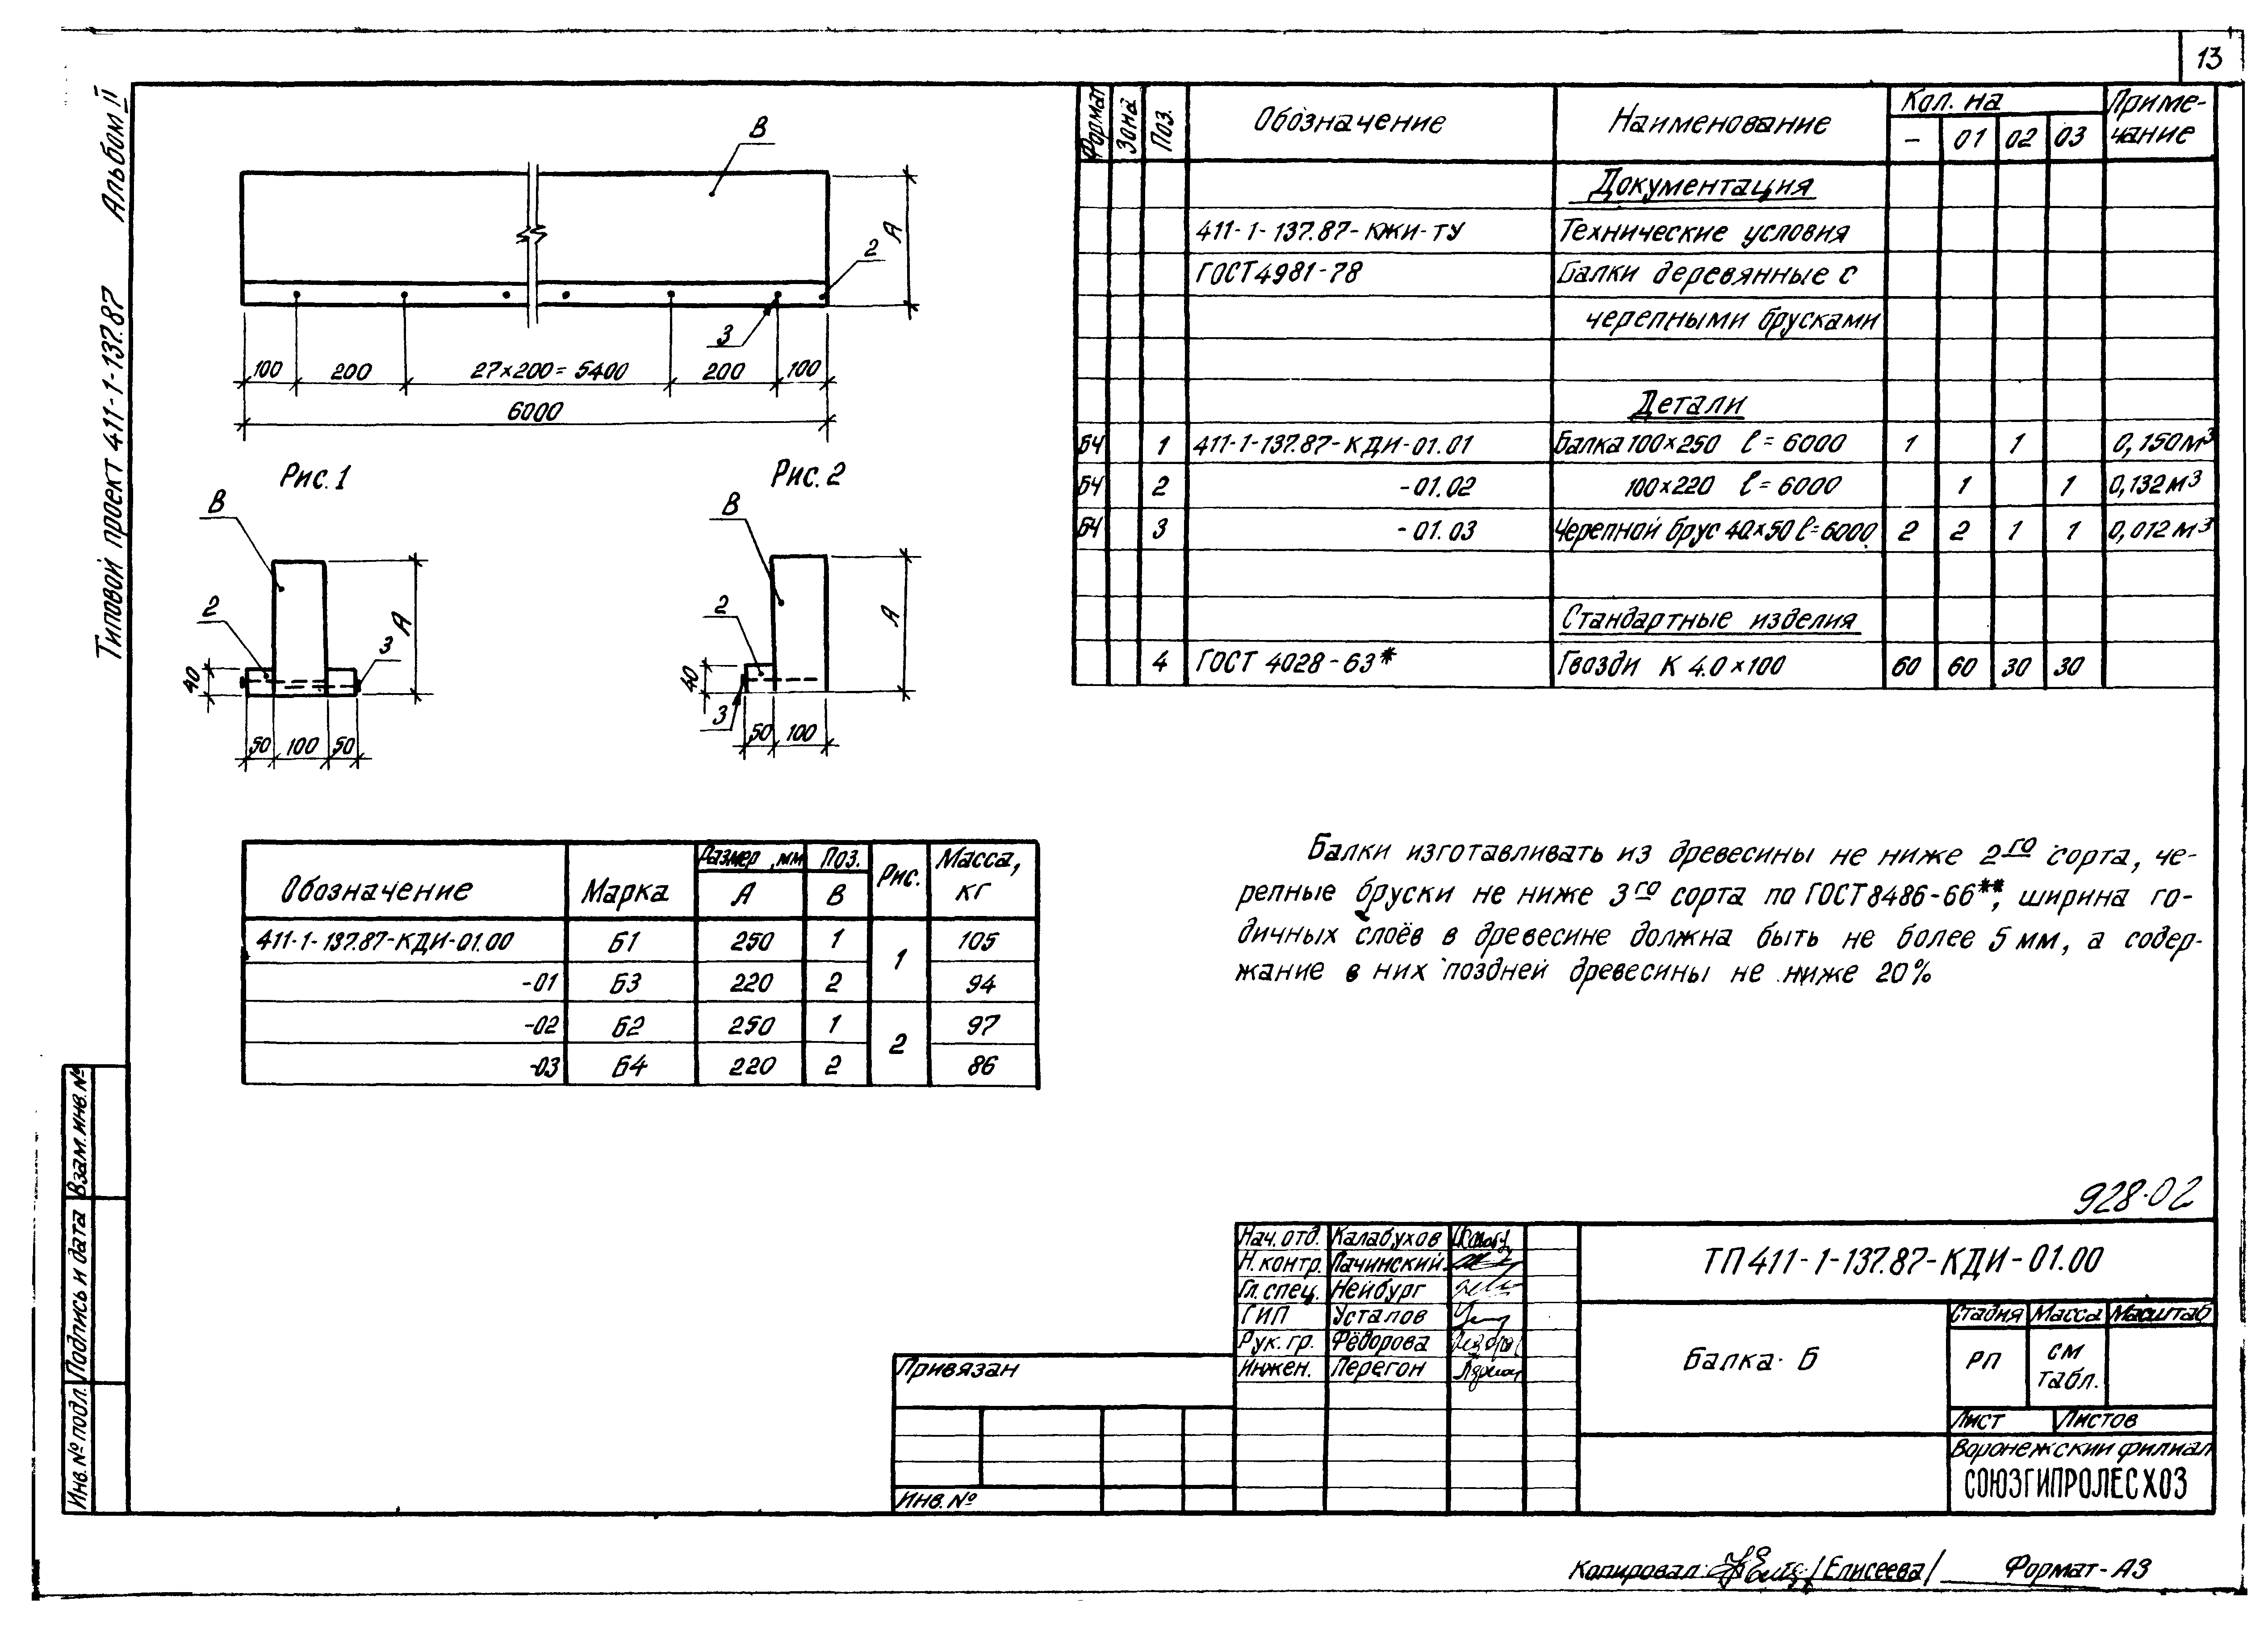 13
Типовой проект 411-1-137.87 Альбом II
В
А
2
3
100 200 27×200=5400 200 100
6000
Рис.1
В
2
3
40
А
50 100 50
Рис.2
В
2
3
40
А
50 100
Формат Зона Поз. Обозначение Наименование Кол. на Приме-
– 01 02 03 чание
Документация
411-1-137.87-КЖИ-ТУ Технические условия
ГОСТ 4981-78 Балки деревянные с
черепными брусками
Детали
БЧ 1 411-1-137.87-КДИ-01.01 Балка 100×250 ℓ=6000 1 1 0,150 м³
БЧ 2 -01.02 100×220 ℓ=6000 1 1 0,132 м³
БЧ 3 -01.03 Черепной брус 40×50 ℓ=6000 2 2 1 1 0,012 м³
Стандартные изделия
4 ГОСТ 4028-63* Гвозди К 4.0×100 60 60 30 30
Обозначение Марка Размер, мм Поз. Рис. Масса,
А В кг
411-1-137.87-КДИ-01.00 Б1 250 1 1 105
-01 Б3 220 2 94
-02 Б2 250 1 2 97
-03 Б4 220 2 86
Балки изготавливать из древесины не ниже 2го сорта, че-
репные бруски не ниже 3го сорта по ГОСТ 8486-66**, ширина го-
дичных слоёв в древесине должна быть не более 5 мм, а содер-
жание в них поздней древесины не ниже 20%
928-02
Взам.инв.№
Подпись и дата
Инв.№ подл.
Привязан
Инв.№
Нач.отд. Калабухов
Н.контр. Пачинский
Гл.спец. Нейбург
ГИП Усталов
Рук.гр. Фёдорова
Инжен. Перегон
ТП 411-1-137.87-КДИ-01.00
Балка Б
Стадия Масса Масштаб
РП см
табл.
Лист Листов
Воронежский филиал
СОЮЗГИПРОЛЕСХОЗ
Копировал: /Елисеева/ Формат-А3